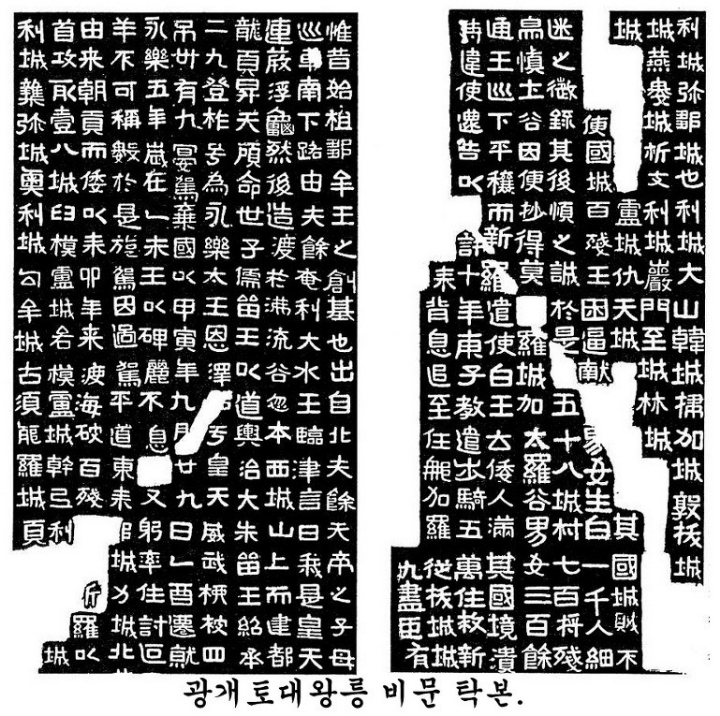 惟昔始祖鄒牟王之創基也出自北夫餘天帝之子母
巡車南下路由夫餘奄利大水王臨津言曰我是皇天
連葭浮龜然後造渡於沸流谷忽本西城山上而建都
龍頁昇天顧命世子儒留王以道興治大朱留王紹承
二九登祚号為永樂太王恩澤于皇天威武柳被四
弔卅有九宴駕棄國以甲寅年九月廿九日乙酉遷就
永樂五年歲在乙未王以碑麗不息又躬率住討叵
羊不可稱數於是旋駕因過駕平道東来城力城北
由来朝貢而倭以来卯年来渡海破百殘斤羅以
首攻取壹八城臼模盧城各模盧城幹弖利城
利城雜弥城奧利城勾牟城古須能羅城頁
利城弥鄒城也利城大山韓城掃加城敦拔城
城燕婁城析支利城巖門至城林城
城盧城仇天城其國城賊不
便國城百殘王困逼獻女生白一千人細
迷之愆錄其後順之誠於是五十八城村七百將殘
鳥慎土谷因便抄得莫羅城加太羅谷男女三百餘
通王巡下平穰而新羅遣使白王云倭人滿其國境潰
遣使還告以十年庚子教遣步騎五萬住救新
来背息追至任那加羅從拔城城
九盡臣有
광개토대왕릉 비문 탁본.